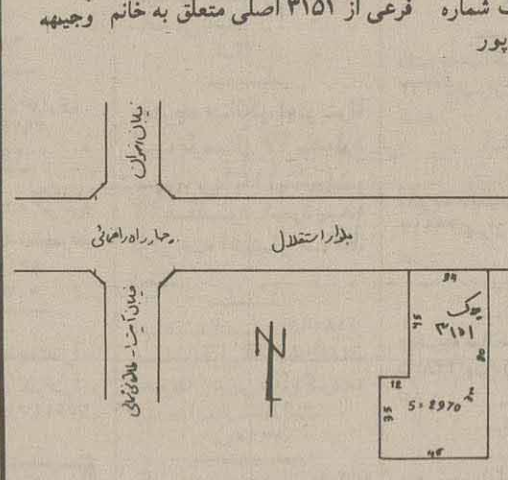 شماره فرعی از ۳۱۵۱ اصلی متعلق به خانم وجیهه
پور
خیابان تهران
چهارراه راهنمائی
بلوار استقلال
خیابان آیت ا... طالقانی شمالی
پلاک
۳۱۵۱
45
12
35
S=2970